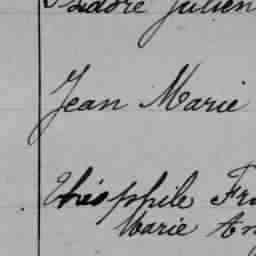 Isidore Julien
Jean Marie
Théophile Fra
Marie An